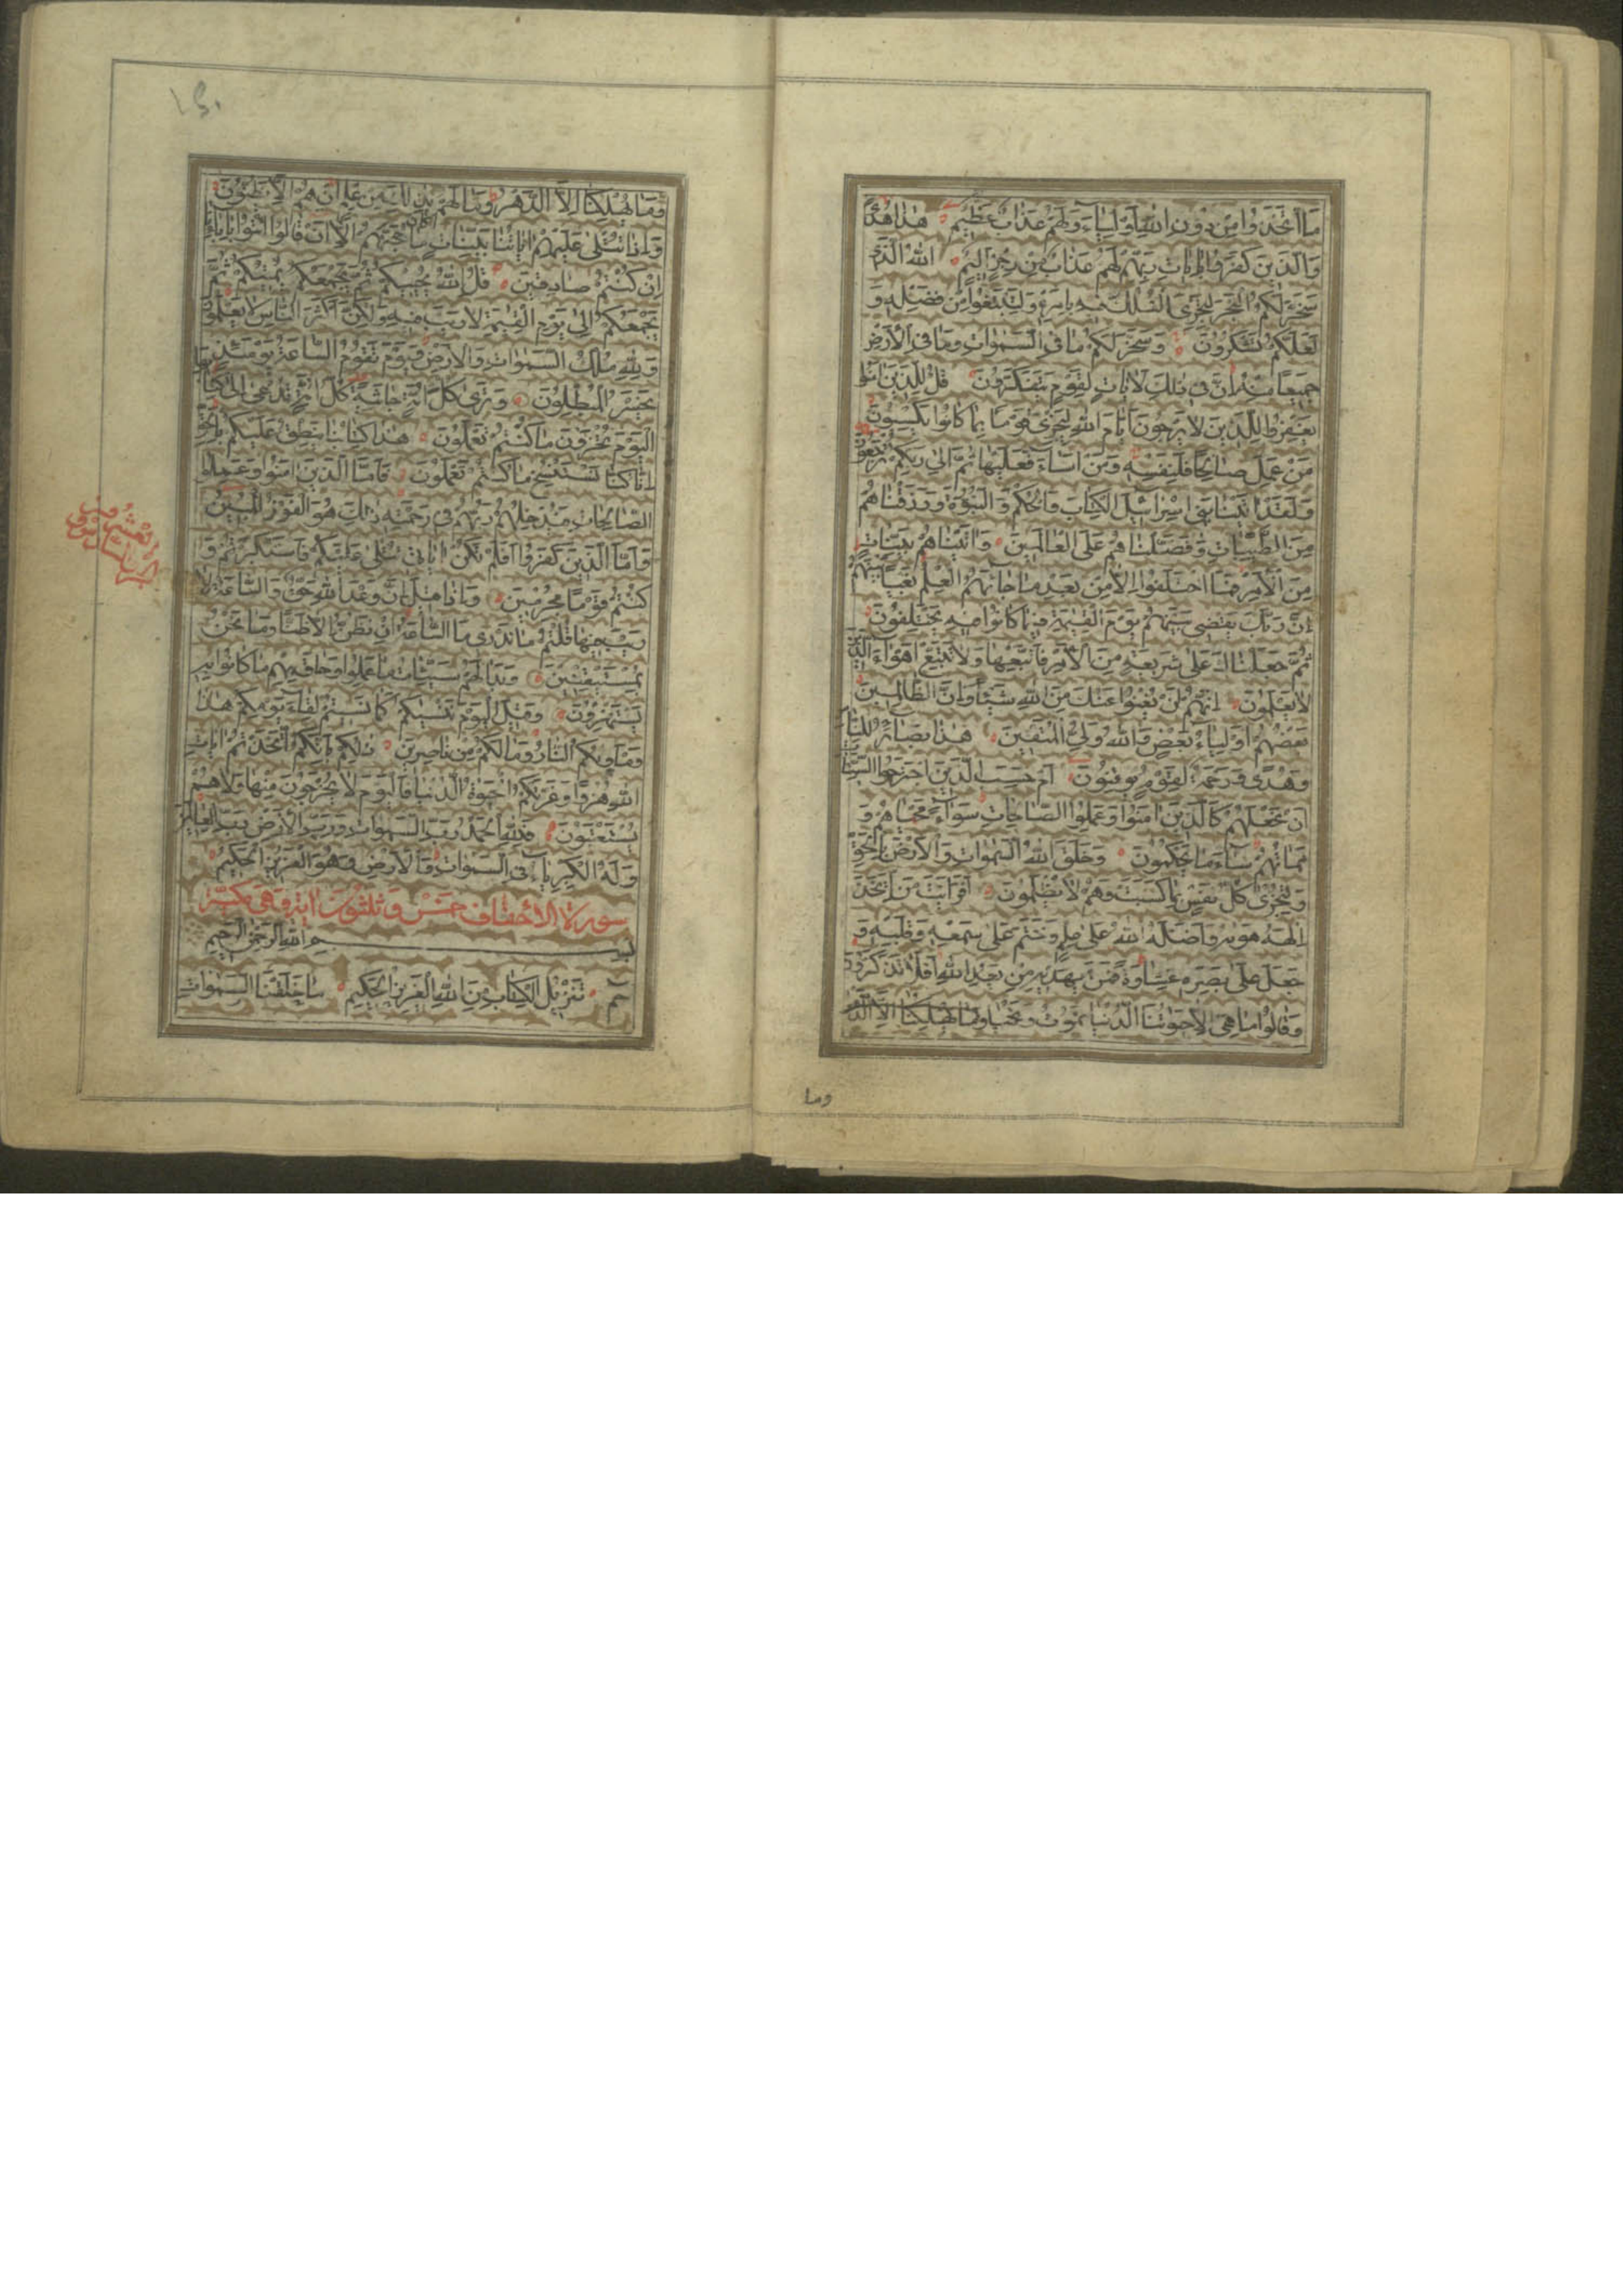 مَا اتَّخَذُوا مِنْ دُونِ اللهِ اَوْلِيَآءَ وَلَهُمْ عَذَابٌ عَظِيمٌ هٰذَا هُدًى
وَالَّذِينَ كَفَرُوا بِاٰيَاتِ رَبِّهِمْ لَهُمْ عَذَابٌ مِنْ رِجْزٍ اَلِيمٌ اَللهُ الَّذِى
سَخَّرَ لَكُمُ الْبَحْرَ لِتَجْرِىَ الْفُلْكُ فِيهِ بِاَمْرِهِ وَلِتَبْتَغُوا مِنْ فَضْلِهِ وَ
لَعَلَّكُمْ تَشْكُرُونَ وَسَخَّرَ لَكُمْ مَا فِى السَّمٰوَاتِ وَمَا فِى الْاَرْضِ
جَمِيعًا مِنْهُ اِنَّ فِى ذٰلِكَ لَاٰيَاتٍ لِقَوْمٍ يَتَفَكَّرُونَ قُلْ لِلَّذِينَ اٰمَنُوا
يَغْفِرُوا لِلَّذِينَ لَا يَرْجُونَ اَيَّامَ اللهِ لِيَجْزِىَ قَوْمًا بِمَا كَانُوا يَكْسِبُونَ
مَنْ عَمِلَ صَالِحًا فَلِنَفْسِهِ وَمَنْ اَسَآءَ فَعَلَيْهَا ثُمَّ اِلٰى رَبِّكُمْ تُرْجَعُونَ
وَلَقَدْ اٰتَيْنَا بَنِى اِسْرَائِيلَ الْكِتَابَ وَالْحُكْمَ وَالنُّبُوَّةَ وَرَزَقْنَاهُمْ
مِنَ الطَّيِّبَاتِ وَفَضَّلْنَاهُمْ عَلَى الْعَالَمِينَ وَاٰتَيْنَاهُمْ بَيِّنَاتٍ
مِنَ الْاَمْرِ فَمَا اخْتَلَفُوا اِلَّا مِنْ بَعْدِ مَا جَآءَهُمُ الْعِلْمُ بَغْيًا بَيْنَهُمْ
اِنَّ رَبَّكَ يَقْضِى بَيْنَهُمْ يَوْمَ الْقِيٰمَةِ فِيمَا كَانُوا فِيهِ يَخْتَلِفُونَ
ثُمَّ جَعَلْنَاكَ عَلٰى شَرِيعَةٍ مِنَ الْاَمْرِ فَاتَّبِعْهَا وَلَا تَتَّبِعْ اَهْوَآءَ الَّذِينَ
لَا يَعْلَمُونَ اِنَّهُمْ لَنْ يُغْنُوا عَنْكَ مِنَ اللهِ شَيْئًا وَاِنَّ الظَّالِمِينَ
بَعْضُهُمْ اَوْلِيَآءُ بَعْضٍ وَاللهُ وَلِىُّ الْمُتَّقِينَ هٰذَا بَصَائِرُ لِلنَّاسِ
وَهُدًى وَرَحْمَةٌ لِقَوْمٍ يُوقِنُونَ اَمْ حَسِبَ الَّذِينَ اجْتَرَحُوا السَّيِّئَاتِ
اَنْ نَجْعَلَهُمْ كَالَّذِينَ اٰمَنُوا وَعَمِلُوا الصَّالِحَاتِ سَوَآءً مَحْيَاهُمْ وَ
مَمَاتُهُمْ سَآءَ مَا يَحْكُمُونَ وَخَلَقَ اللهُ السَّمٰوَاتِ وَالْاَرْضَ بِالْحَقِّ
وَلِتُجْزٰى كُلُّ نَفْسٍ بِمَا كَسَبَتْ وَهُمْ لَا يُظْلَمُونَ اَفَرَاَيْتَ مَنِ اتَّخَذَ
اِلٰهَهُ هَوٰيهُ وَاَضَلَّهُ اللهُ عَلٰى عِلْمٍ وَخَتَمَ عَلٰى سَمْعِهِ وَقَلْبِهِ وَ
جَعَلَ عَلٰى بَصَرِهِ غِشَاوَةً فَمَنْ يَهْدِيهِ مِنْ بَعْدِ اللهِ اَفَلَا تَذَكَّرُونَ
وَقَالُوا مَا هِىَ اِلَّا حَيَاتُنَا الدُّنْيَا نَمُوتُ وَنَحْيَا وَمَا يُهْلِكُنَا اِلَّا الدَّهْرُ
وما
وَمَا يُهْلِكُنَا اِلَّا الدَّهْرُ وَمَا لَهُمْ بِذٰلِكَ مِنْ عِلْمٍ اِنْ هُمْ اِلَّا يَظُنُّونَ
وَاِذَا تُتْلٰى عَلَيْهِمْ اٰيَاتُنَا بَيِّنَاتٍ مَا كَانَ حُجَّتَهُمْ اِلَّا اَنْ قَالُوا ائْتُوا بِاٰبَائِنَا
اِنْ كُنْتُمْ صَادِقِينَ قُلِ اللهُ يُحْيِيكُمْ ثُمَّ يُمِيتُكُمْ ثُمَّ
يَجْمَعُكُمْ اِلٰى يَوْمِ الْقِيٰمَةِ لَا رَيْبَ فِيهِ وَلٰكِنَّ اَكْثَرَ النَّاسِ لَا يَعْلَمُونَ
وَلِلّٰهِ مُلْكُ السَّمٰوَاتِ وَالْاَرْضِ وَيَوْمَ تَقُومُ السَّاعَةُ يَوْمَئِذٍ
يَخْسَرُ الْمُبْطِلُونَ وَتَرٰى كُلَّ اُمَّةٍ جَاثِيَةً كُلُّ اُمَّةٍ تُدْعٰى اِلٰى كِتَابِهَا
اَلْيَوْمَ تُجْزَوْنَ مَا كُنْتُمْ تَعْمَلُونَ هٰذَا كِتَابُنَا يَنْطِقُ عَلَيْكُمْ بِالْحَقِّ
اِنَّا كُنَّا نَسْتَنْسِخُ مَا كُنْتُمْ تَعْمَلُونَ فَاَمَّا الَّذِينَ اٰمَنُوا وَعَمِلُوا
الصَّالِحَاتِ فَيُدْخِلُهُمْ رَبُّهُمْ فِى رَحْمَتِهِ ذٰلِكَ هُوَ الْفَوْزُ الْمُبِينُ
وَاَمَّا الَّذِينَ كَفَرُوا اَفَلَمْ تَكُنْ اٰيَاتِى تُتْلٰى عَلَيْكُمْ فَاسْتَكْبَرْتُمْ وَ
كُنْتُمْ قَوْمًا مُجْرِمِينَ وَاِذَا قِيلَ اِنَّ وَعْدَ اللهِ حَقٌّ وَالسَّاعَةُ لَا
رَيْبَ فِيهَا قُلْتُمْ مَا نَدْرِى مَا السَّاعَةُ اِنْ نَظُنُّ اِلَّا ظَنًّا وَمَا نَحْنُ
بِمُسْتَيْقِنِينَ وَبَدَا لَهُمْ سَيِّئَاتُ مَا عَمِلُوا وَحَاقَ بِهِمْ مَا كَانُوا بِهِ
يَسْتَهْزِؤُنَ وَقِيلَ الْيَوْمَ نَنْسٰيكُمْ كَمَا نَسِيتُمْ لِقَآءَ يَوْمِكُمْ هٰذَا
وَمَأْوٰيكُمُ النَّارُ وَمَا لَكُمْ مِنْ نَاصِرِينَ ذٰلِكُمْ بِاَنَّكُمُ اتَّخَذْتُمْ اٰيَاتِ
اللهِ هُزُوًا وَغَرَّتْكُمُ الْحَيٰوةُ الدُّنْيَا فَالْيَوْمَ لَا يُخْرَجُونَ مِنْهَا وَلَا هُمْ
يُسْتَعْتَبُونَ فَلِلّٰهِ الْحَمْدُ رَبِّ السَّمٰوَاتِ وَرَبِّ الْاَرْضِ رَبِّ الْعَالَمِينَ
وَلَهُ الْكِبْرِيَآءُ فِى السَّمٰوَاتِ وَالْاَرْضِ وَهُوَ الْعَزِيزُ الْحَكِيمُ
سورة الاحقاف خمس وثلثون اية وهى مكية
بسم الله الرحمن الرحيم
حٰمٓ تَنْزِيلُ الْكِتَابِ مِنَ اللهِ الْعَزِيزِ الْحَكِيمِ مَا خَلَقْنَا السَّمٰوَاتِ